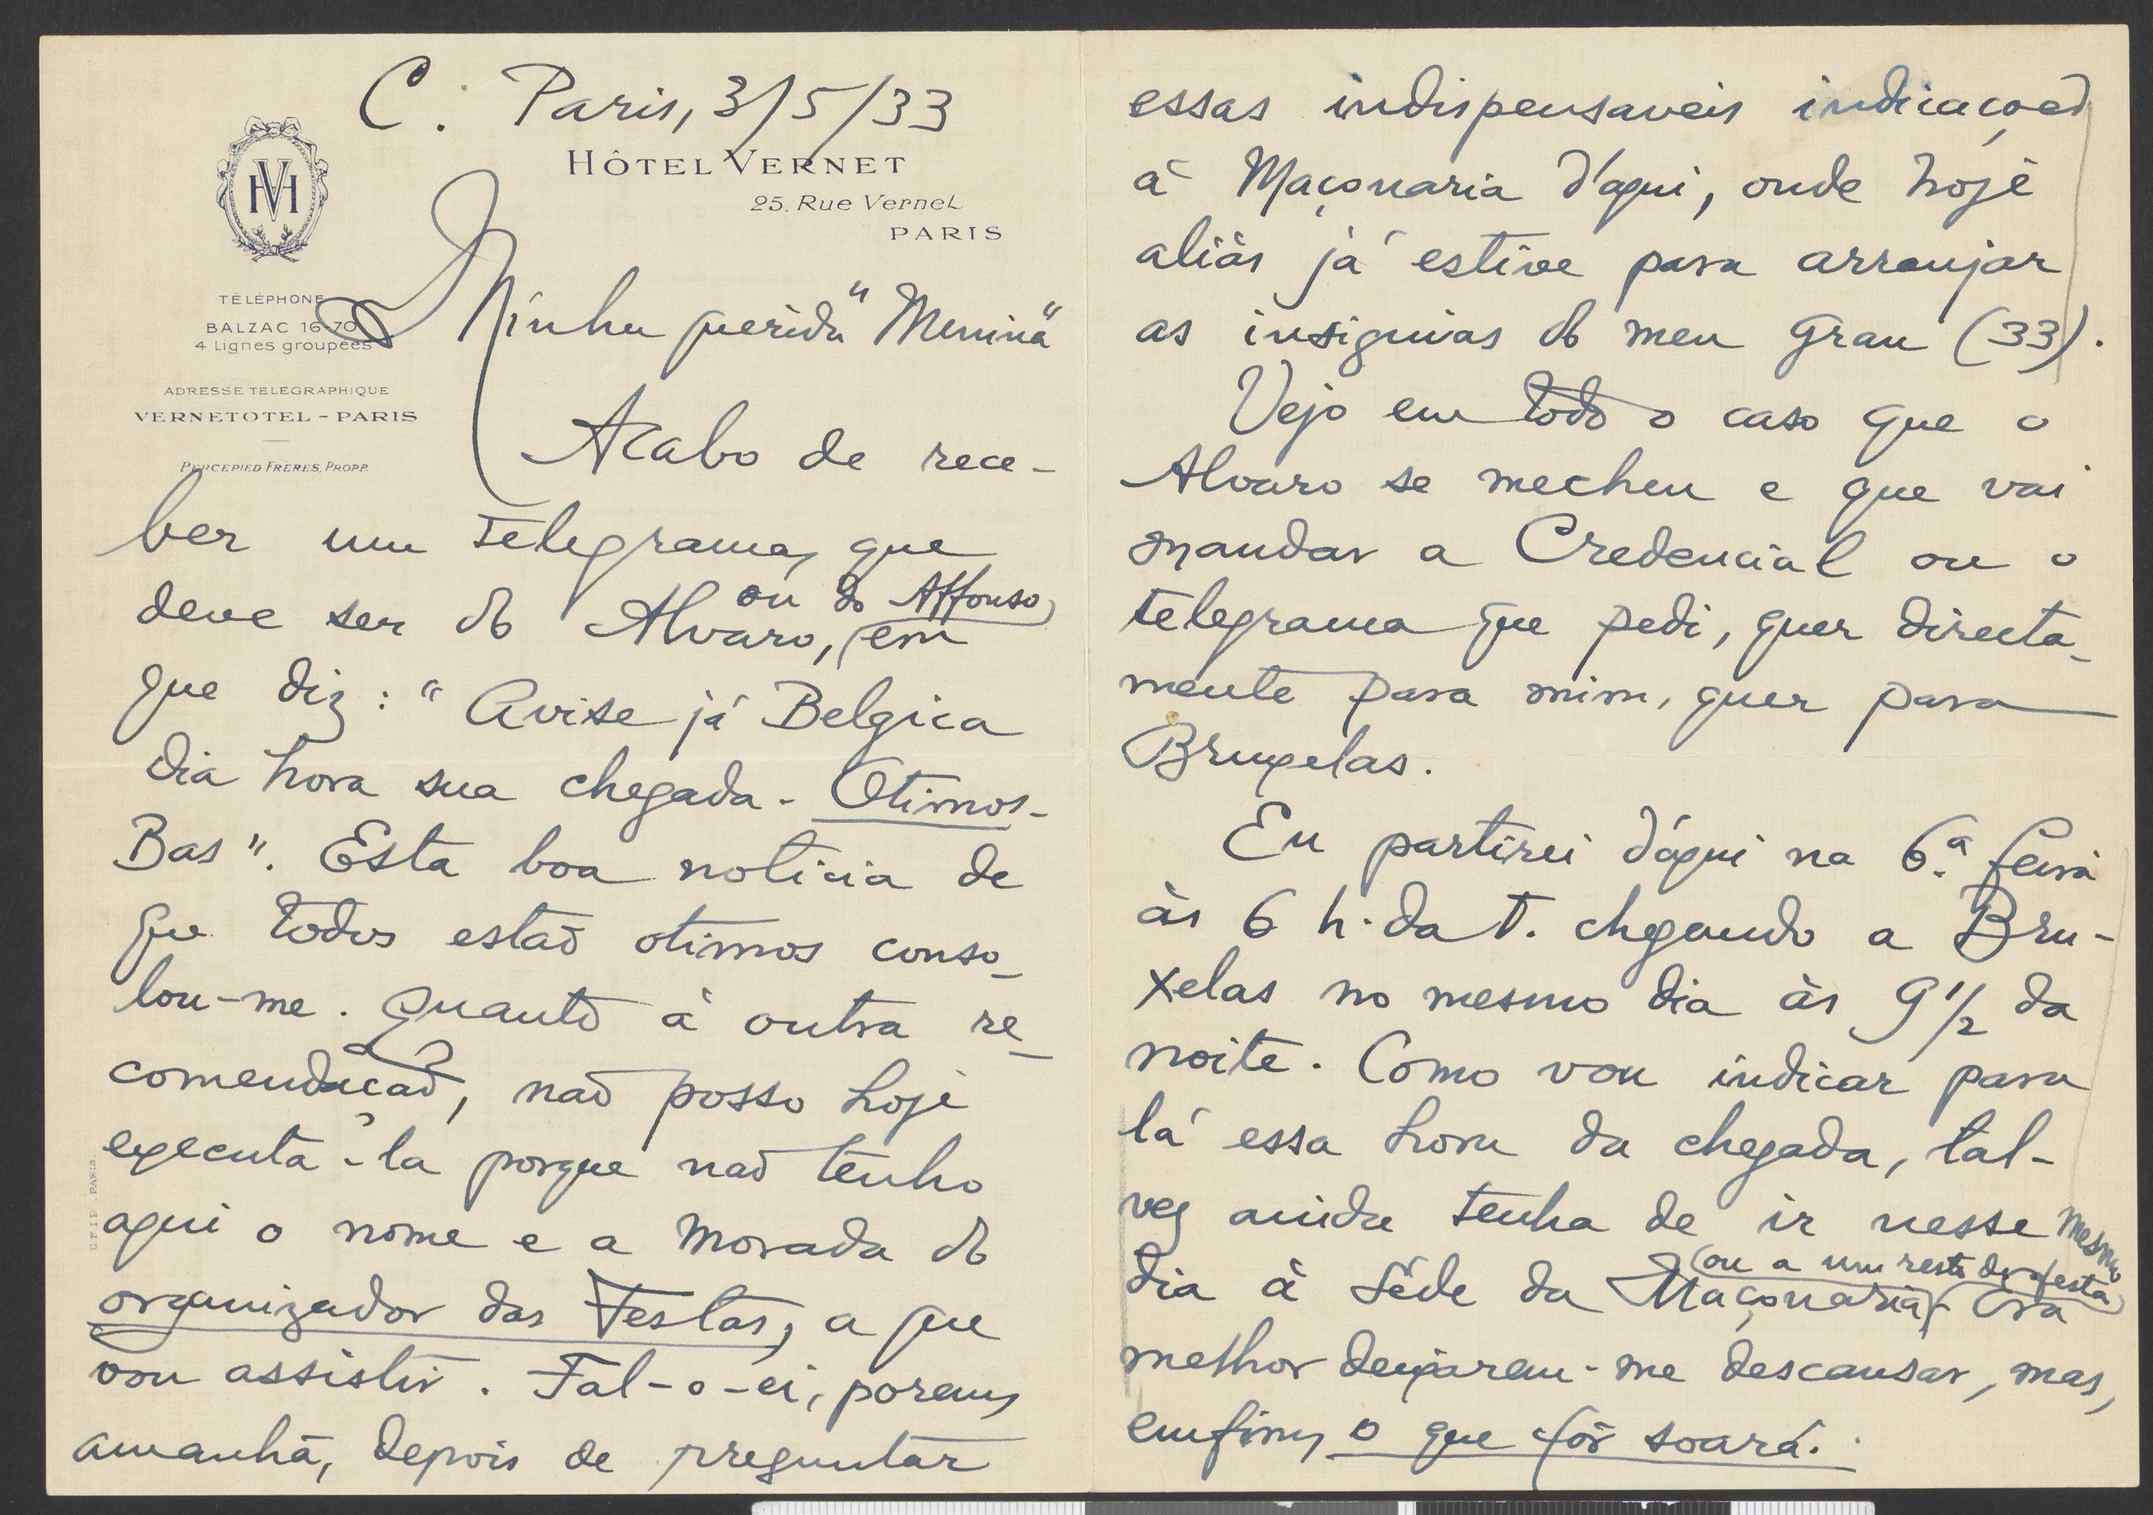 C. Paris, 3/5/33
HÔTEL VERNET
25, Rue Vernet
PARIS
VH
TÉLÉPHONE
BALZAC 16-70
4 Lignes groupées
ADRESSE TÉLÉGRAPHIQUE
VERNETOTEL - PARIS
PERCEPIED FRÈRES, PROPP.
Minha querida "Menina"
Acabo de rece-
ber um telegrama, que
deve ser do Alvaro, (ou do Affonso) em
que diz: "Avise já Belgica
dia hora sua chegada. Otimos-
Bas". Esta boa noticia de
que todos estaõ otimos conso-
lou-me. Quanto à outra re-
comendaçaõ, naõ posso hoje
executa-la porque naõ tenho
aqui o nome e a morada do
organizador das Festas, a que
vou assistir. Fal-o-ei, porem,
amanhã, depois de preguntar
essas indispensaveis indicações
à Maçonaria d'aqui, onde hoje
aliàs já estive para arranjar
as insignias do meu Grau (33).
Vejo em todo o caso que o
Alvaro se mecheu e que vai
mandar a Credencial ou o
telegrama que pedi, quer directa-
mente para mim, quer para
Bruxelas.
Eu partirei d'aqui na 6.ª feira
às 6 h. da t. chegando a Bru-
xelas no mesmo dia às 9 1/2 da
noite. Como vou indicar para
lá essa hora da chegada, tal-
vez ainda tenha de ir nesse mesmo
dia à séde da Maçonaria (ou a um resto de festa). Era
melhor deixarem-me descansar, mas,
emfim, o que fôr soará.